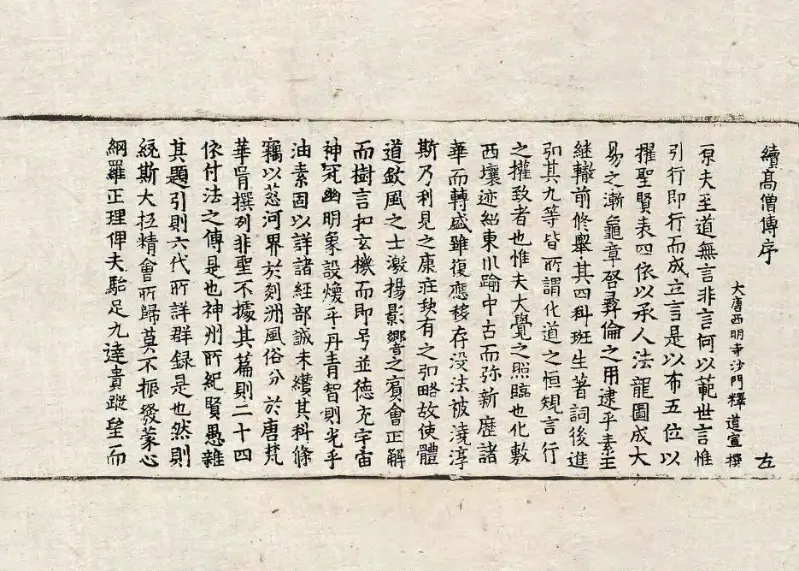 續高僧傳序 左
大唐西明寺沙門釋道宣撰
原夫至道無言非言何以範世言惟
引行即行而成立言是以布五位以
擢聖賢表四依以承人法龍圖成大
易之漸龜章啓彝倫之用逮乎素王
継轍前修舉其四科班生著詞後進
弘其九等皆所謂化道之恒規言行
之權致者也惟夫大覺之照臨也化敷
西壤迹紹東川踰中古而弥新歷諸
華而轉盛雖復應移存没法被澆淳
斯乃利見之康莊缺有之弘略故使體
道欽風之士激揚影響之賓會正解
而樹言扣玄機而即号並德充宇宙
神冠幽明象設煥乎丹青智則光乎
油素固以詳諸經部誠未纘其科條
竊以葱河界於刻洲風俗分於唐梵
華胥撰列非聖不據其篇則二十四
依付法之傳是也神州所紀賢愚雜
其題引則六代所詳群録是也然則
統斯大抵精會所歸莫不振發蒙心
網羅正理俾夫駘足九逵貴蹤望而